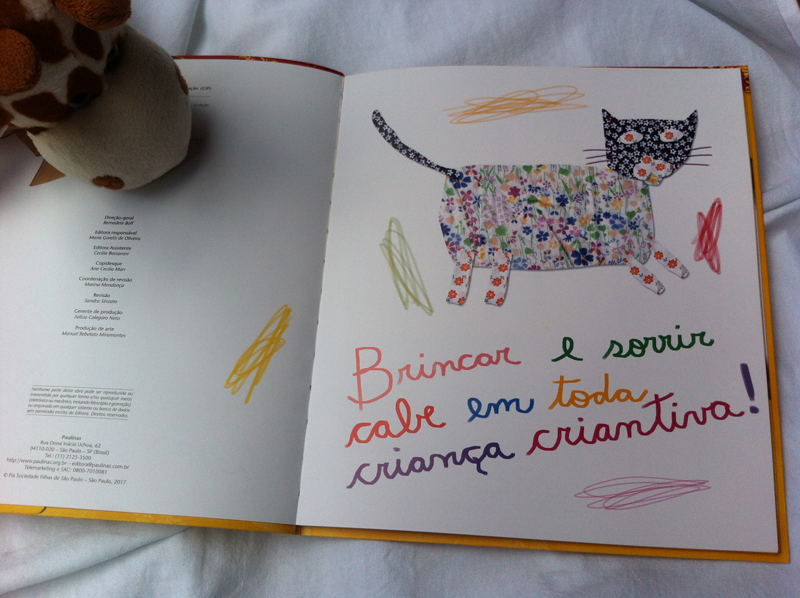 (CIP)
Direção-geral
Bernadete Boff
Editora responsável
Maria Goretti de Oliveira
Editora Assistente
Cecília Bassarani
Copidesque
Ana Cecilia Mari
Coordenação de revisão
Marina Mendonça
Revisão
Sandra Sinzato
Gerente de produção
Felício Calegaro Neto
Produção de arte
Manuel Rebelato Miramontes
Nenhuma parte desta obra pode ser reproduzida ou
transmitida por qualquer forma e/ou quaisquer meios
(eletrônico ou mecânico, incluindo fotocópia e gravação)
ou arquivada em qualquer sistema ou banco de dados
sem permissão escrita da Editora. Direitos reservados.
Paulinas
Rua Dona Inácia Uchoa, 62
04110-020 – São Paulo – SP (Brasil)
Tel.: (11) 2125-3500
http://www.paulinas.org.br – editora@paulinas.com.br
Telemarketing e SAC: 0800-7010081
© Pia Sociedade Filhas de São Paulo – São Paulo, 2017
Brincar e sorrir
cabe em toda
criança criantiva!